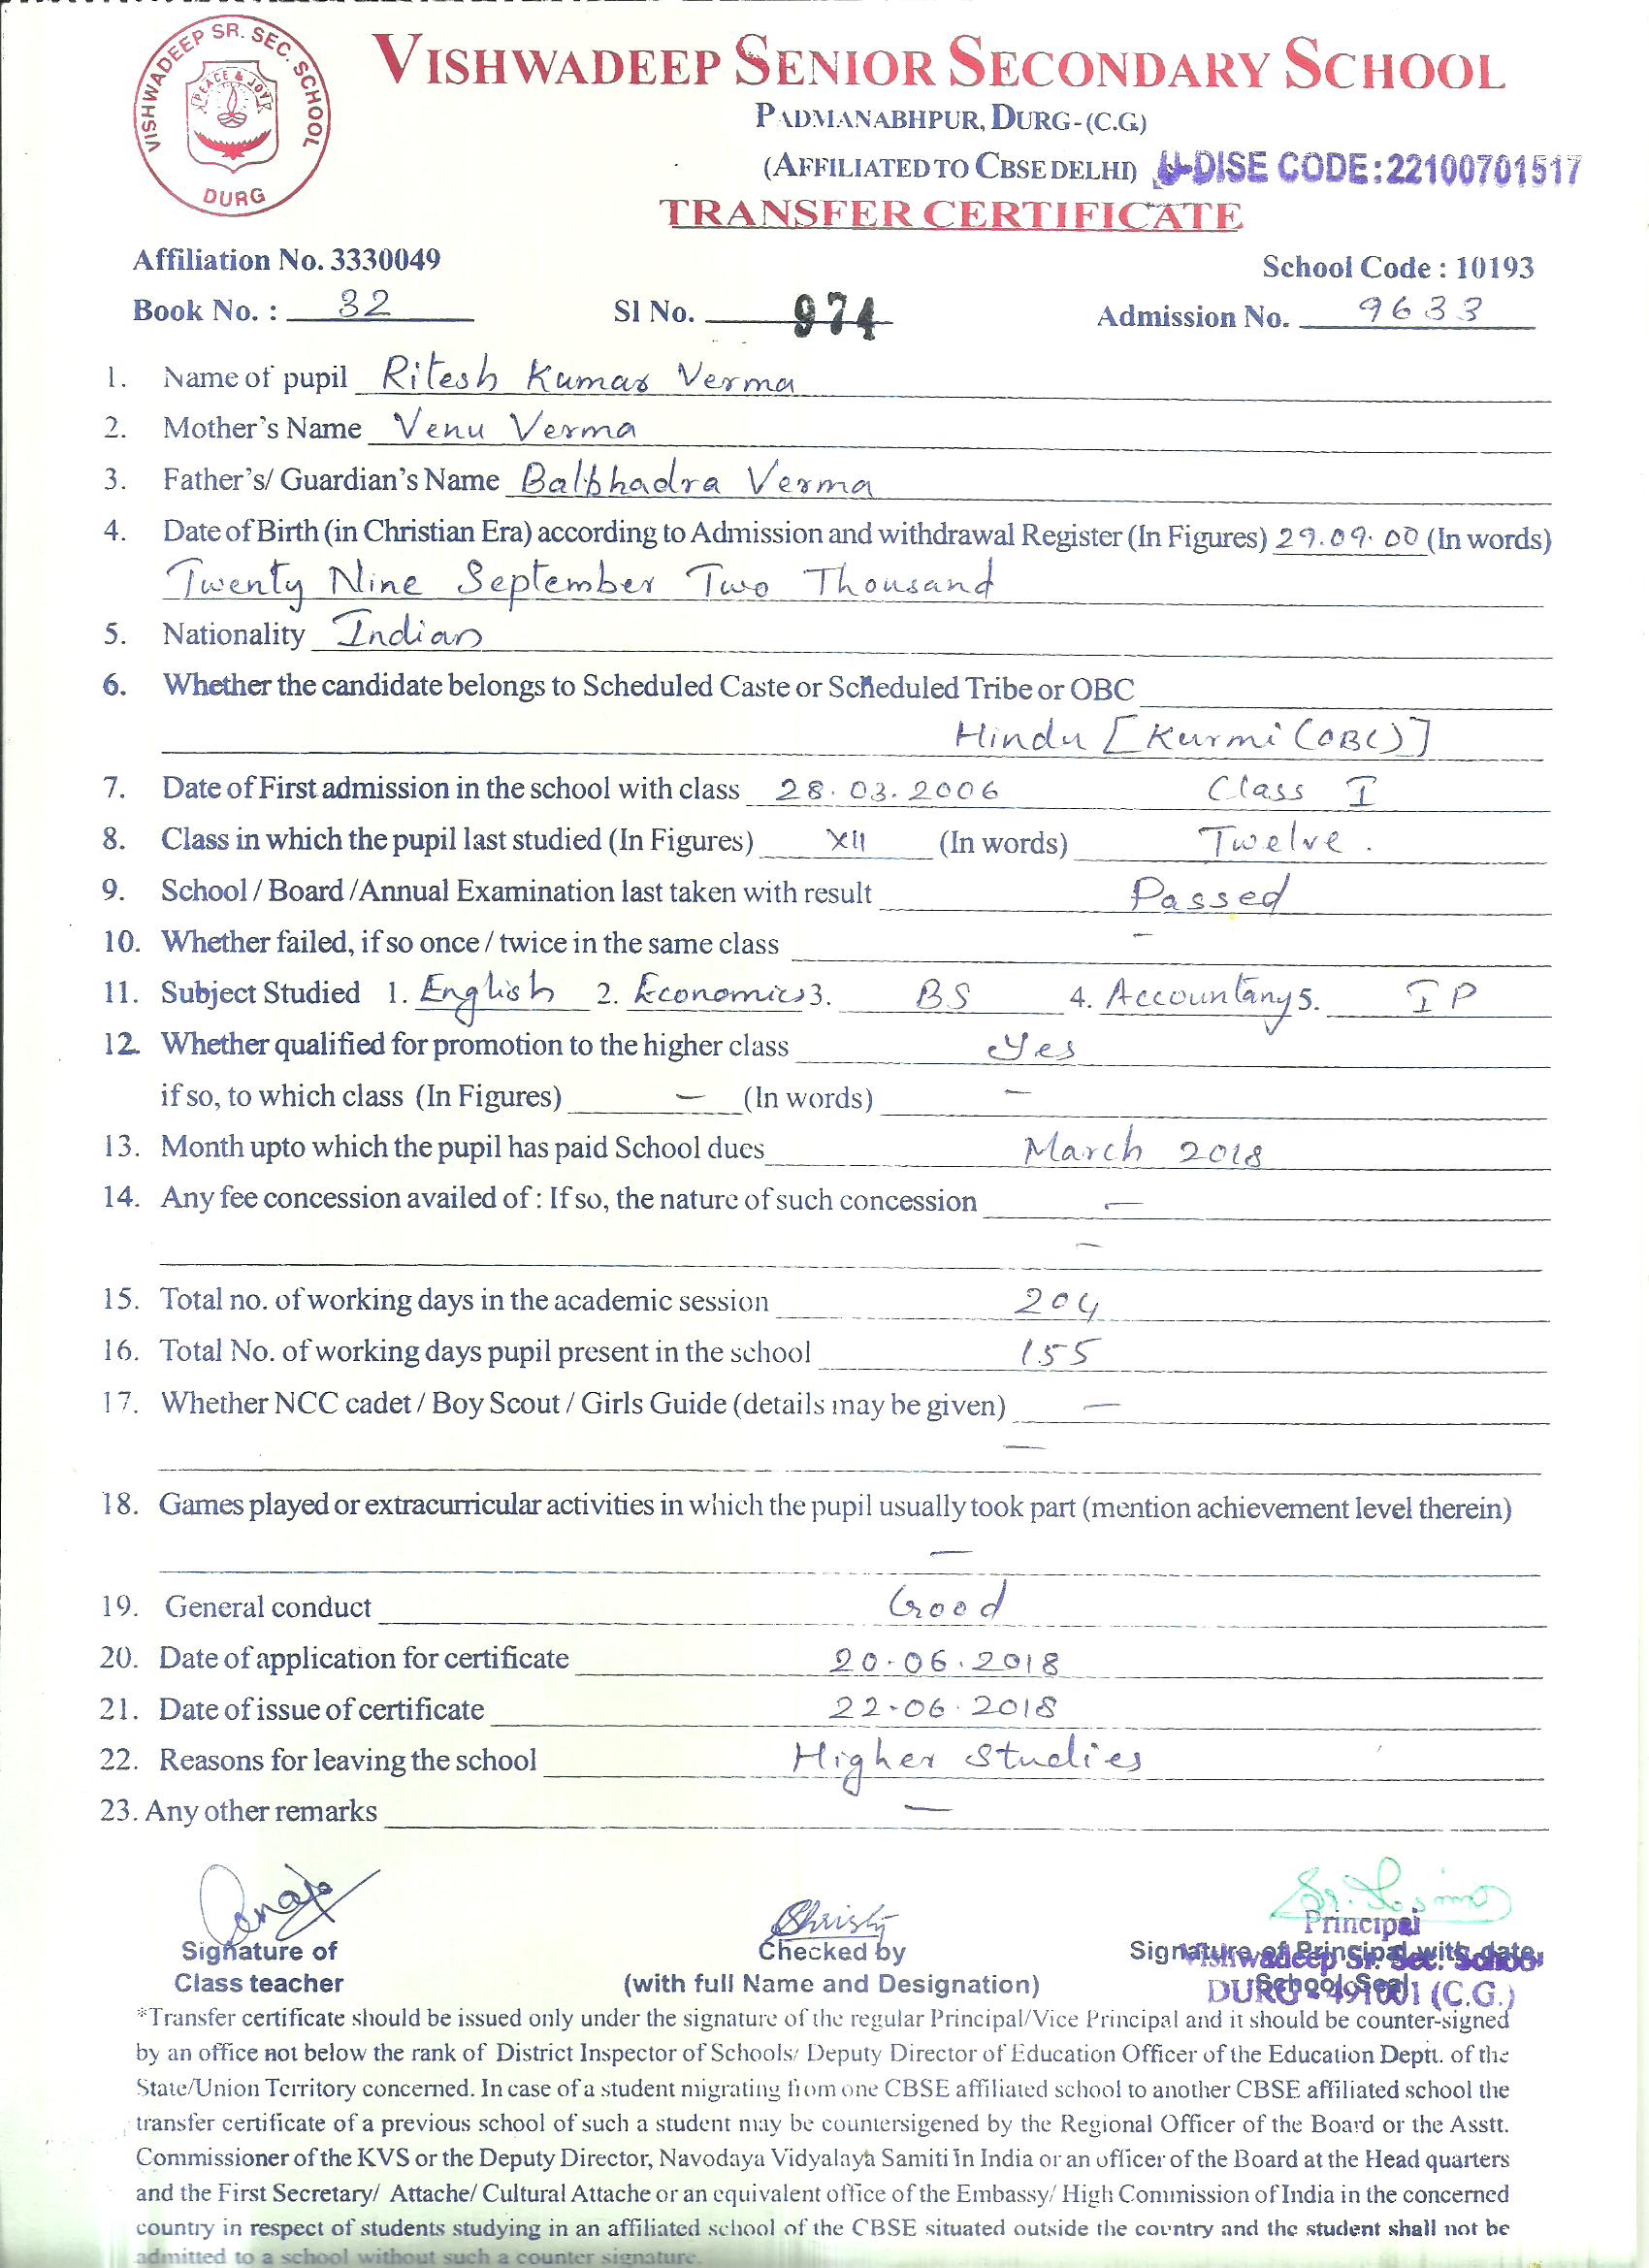 VISHWADEEP SR. SEC. SCHOOL
PEACE & JOY
DURG
VISHWADEEP SENIOR SECONDARY SCHOOL
PADMANABHPUR, DURG-(C.G.)
(AFFILIATED TO CBSE DELHI) U-DISE CODE:22100701517
TRANSFER CERTIFICATE
Affiliation No. 3330049 School Code : 10193
Book No. : 32 Sl No. 974 Admission No. 9633
1. Name of pupil Ritesh Kumar Verma
2. Mother's Name Venu Verma
3. Father's/ Guardian's Name Balbhadra Verma
4. Date of Birth (in Christian Era) according to Admission and withdrawal Register (In Figures) 29.09.00 (In words)
Twenty Nine September Two Thousand
5. Nationality Indian
6. Whether the candidate belongs to Scheduled Caste or Scheduled Tribe or OBC
Hindu [Kurmi (OBC)]
7. Date of First admission in the school with class 28.03.2006 Class I
8. Class in which the pupil last studied (In Figures) XII (In words) Twelve.
9. School / Board /Annual Examination last taken with result Passed
10. Whether failed, if so once / twice in the same class –
11. Subject Studied 1. English 2. Economics 3. BS 4. Accountany 5. IP
12. Whether qualified for promotion to the higher class Yes
if so, to which class (In Figures) – (In words) –
13. Month upto which the pupil has paid School dues March 2018
14. Any fee concession availed of : If so, the nature of such concession –
–
15. Total no. of working days in the academic session 204
16. Total No. of working days pupil present in the school 155
17. Whether NCC cadet / Boy Scout / Girls Guide (details may be given) –
–
18. Games played or extracurricular activities in which the pupil usually took part (mention achievement level therein)
–
19. General conduct Good
20. Date of application for certificate 20.06.2018
21. Date of issue of certificate 22-06.2018
22. Reasons for leaving the school Higher Studies
23. Any other remarks –
Christy
Principal
Signature of Checked by Signature of Principal with date,
Vishwadeep Sr. Sec. School
Class teacher (with full Name and Designation) School Seal
DURG - 491001 (C.G.)
*Transfer certificate should be issued only under the signature of the regular Principal/Vice Principal and it should be counter-signed
by an office not below the rank of District Inspector of Schools/ Deputy Director of Education Officer of the Education Deptt. of the
State/Union Territory concerned. In case of a student migrating from one CBSE affiliated school to another CBSE affiliated school the
transfer certificate of a previous school of such a student may be countersigened by the Regional Officer of the Board or the Asstt.
Commissioner of the KVS or the Deputy Director, Navodaya Vidyalaya Samiti in India or an officer of the Board at the Head quarters
and the First Secretary/ Attache/ Cultural Attache or an equivalent office of the Embassy/ High Commission of India in the concerned
country in respect of students studying in an affiliated school of the CBSE situated outside the country and the student shall not be
admitted to a school without such a counter signature.